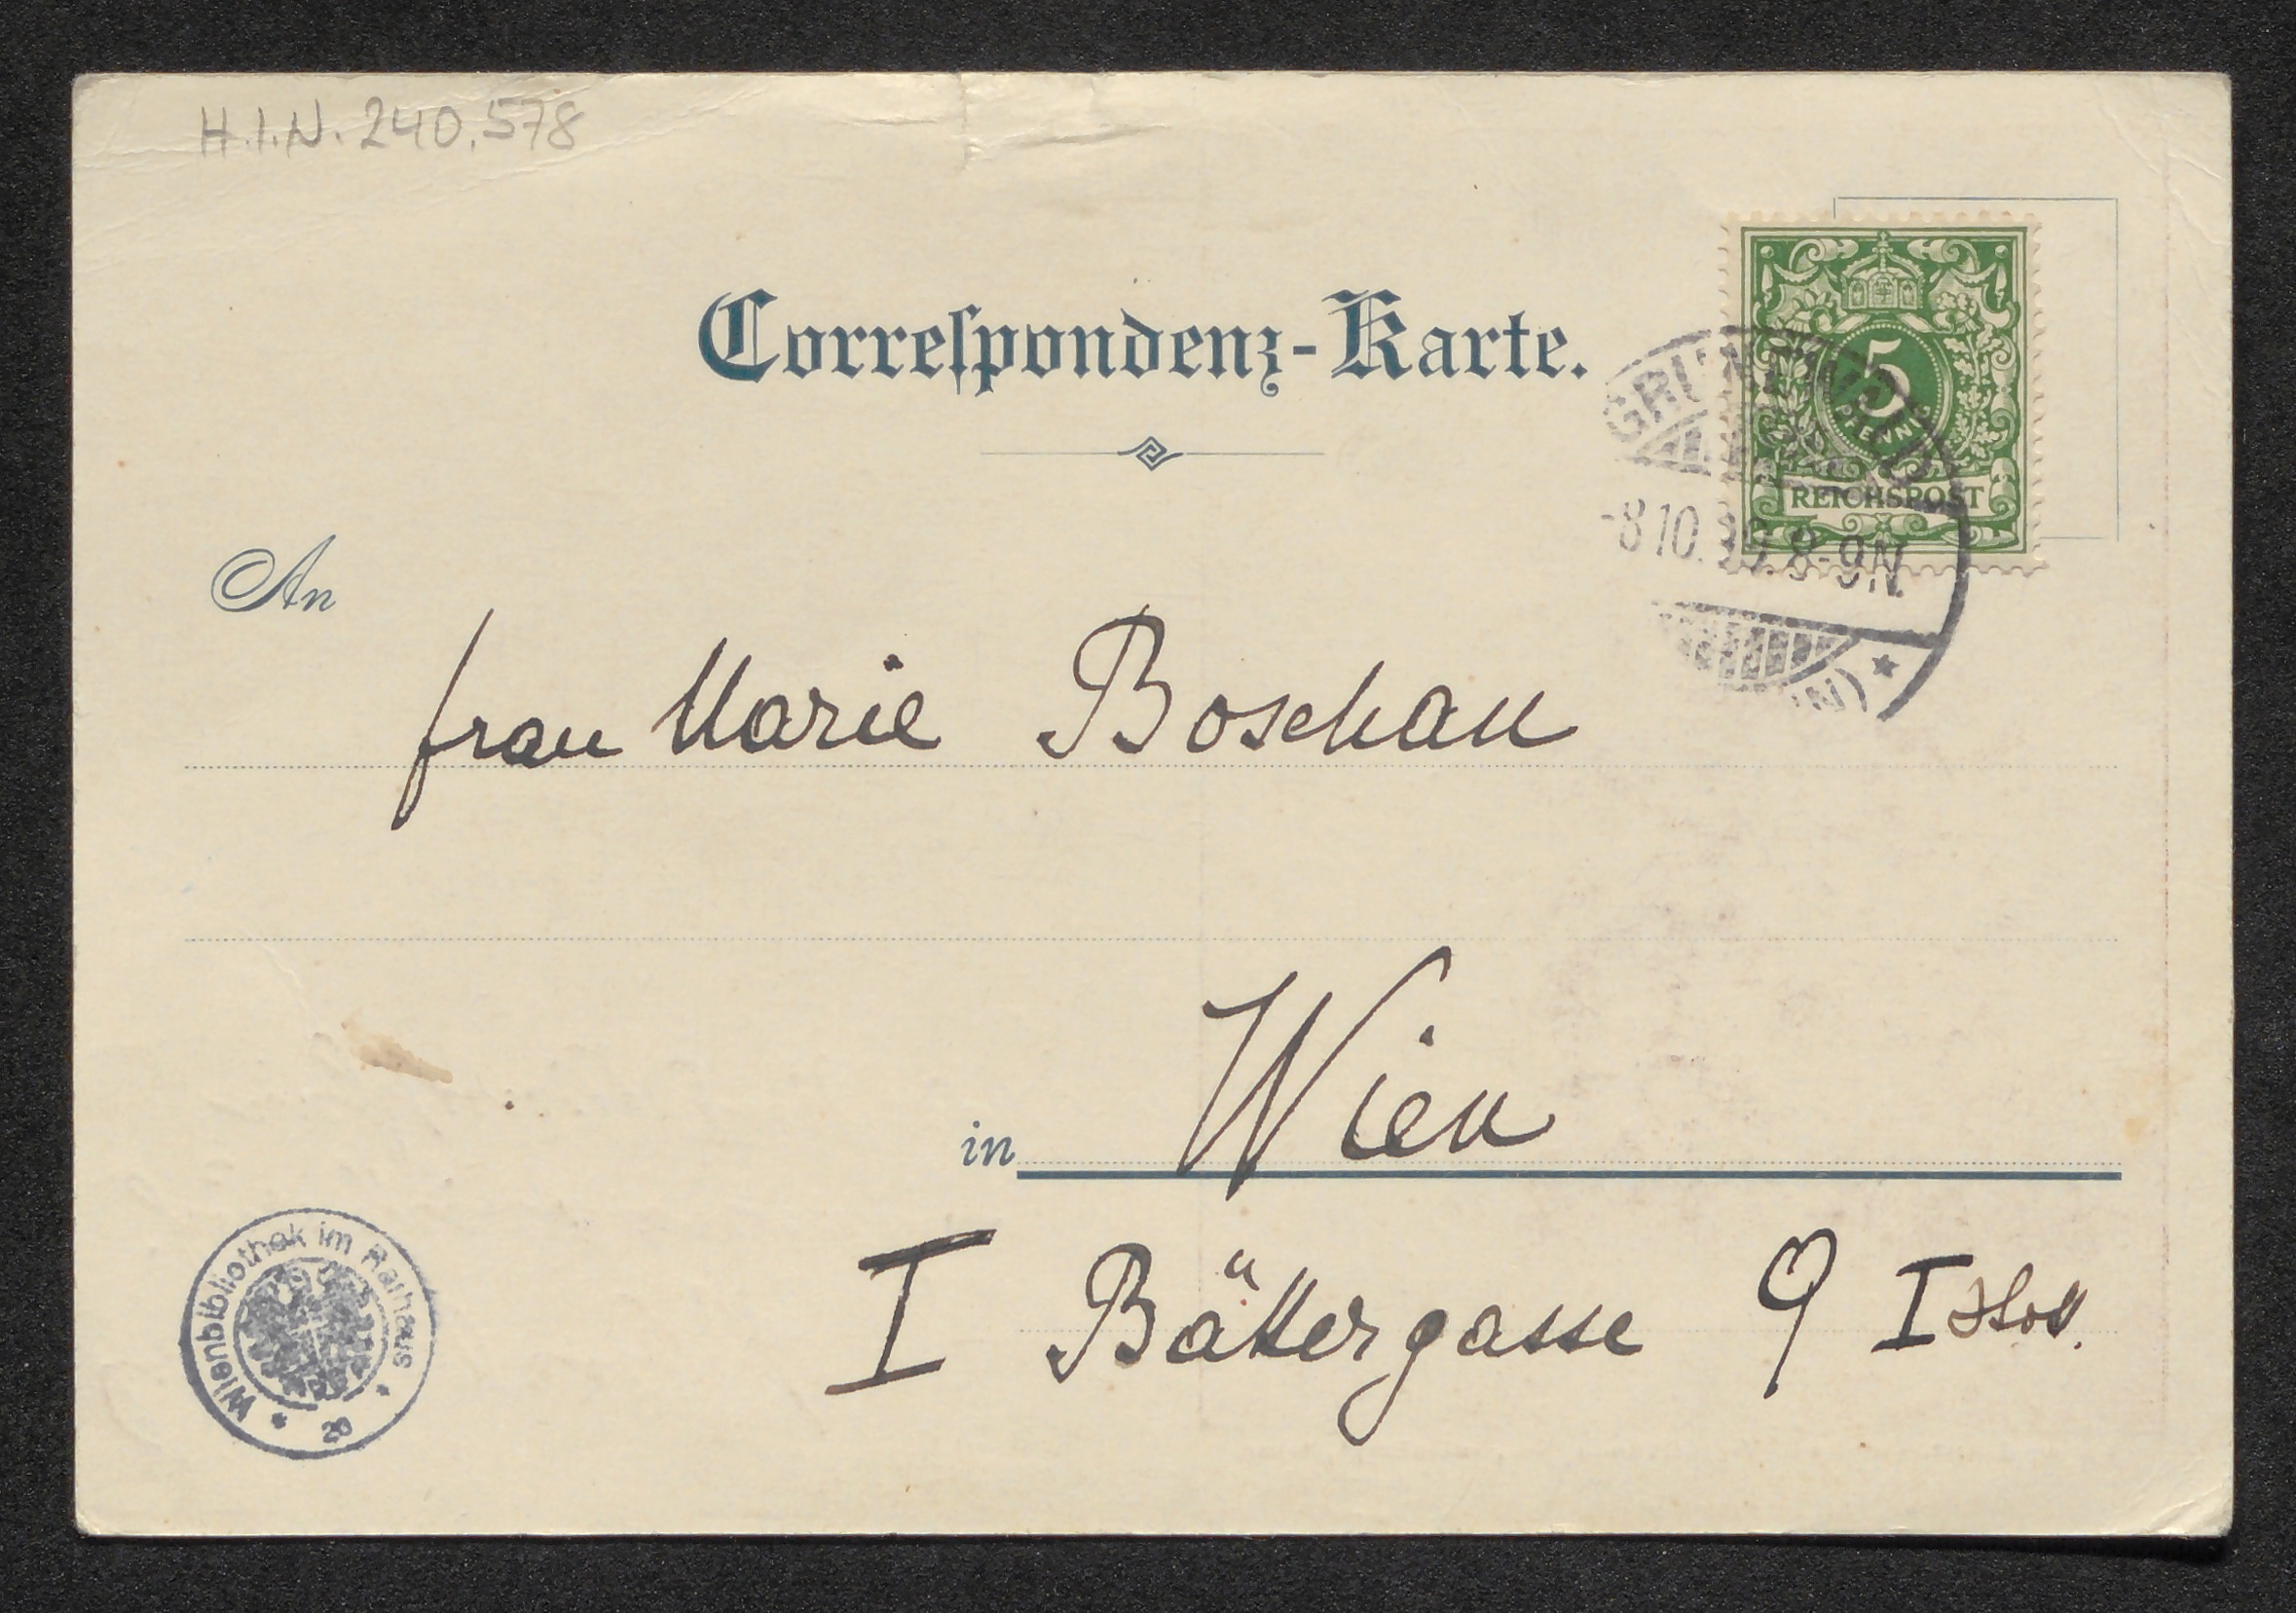 H.I.N. 240.578
Correspondenz-Karte.
5
PFENNIG
REICHSPOST
GRUNEWALD
-8 10. 8-9N
An
frau Marie Boschan
in Wien
I Bäkergasse 9 I Stock.
Wienbibliothek im Rathaus
20